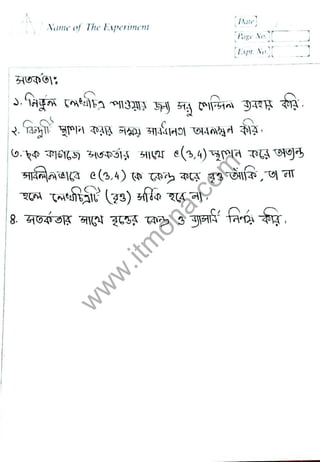 Name of The Experiment
Date
Page No
Expt. No.
সতর্কতাঃ
১. নির্ভুল লেখচিত্র পাওয়ার জন্য সরু পেন্সিল ব্যবহার করি.
২. বিন্দুটি স্থাপন করার সময় সাবধানতা অবলম্বন করি.
৩. ছক কাগজে সতর্কতার সাথে c(3,4) স্থাপন করে অত্যন্ত
সাবলীলভাবে c(3,4) কে কেন্দ্র করে বৃত্ত আঁকি, তা না
হলে লেখচিত্রটি (বৃত্ত) সঠিক হবে না.
৪. সতর্কতার সাথে বৃত্তের কেন্দ্র ও ব্যাসার্ধ নির্ণয় করি.
www.itmona.com